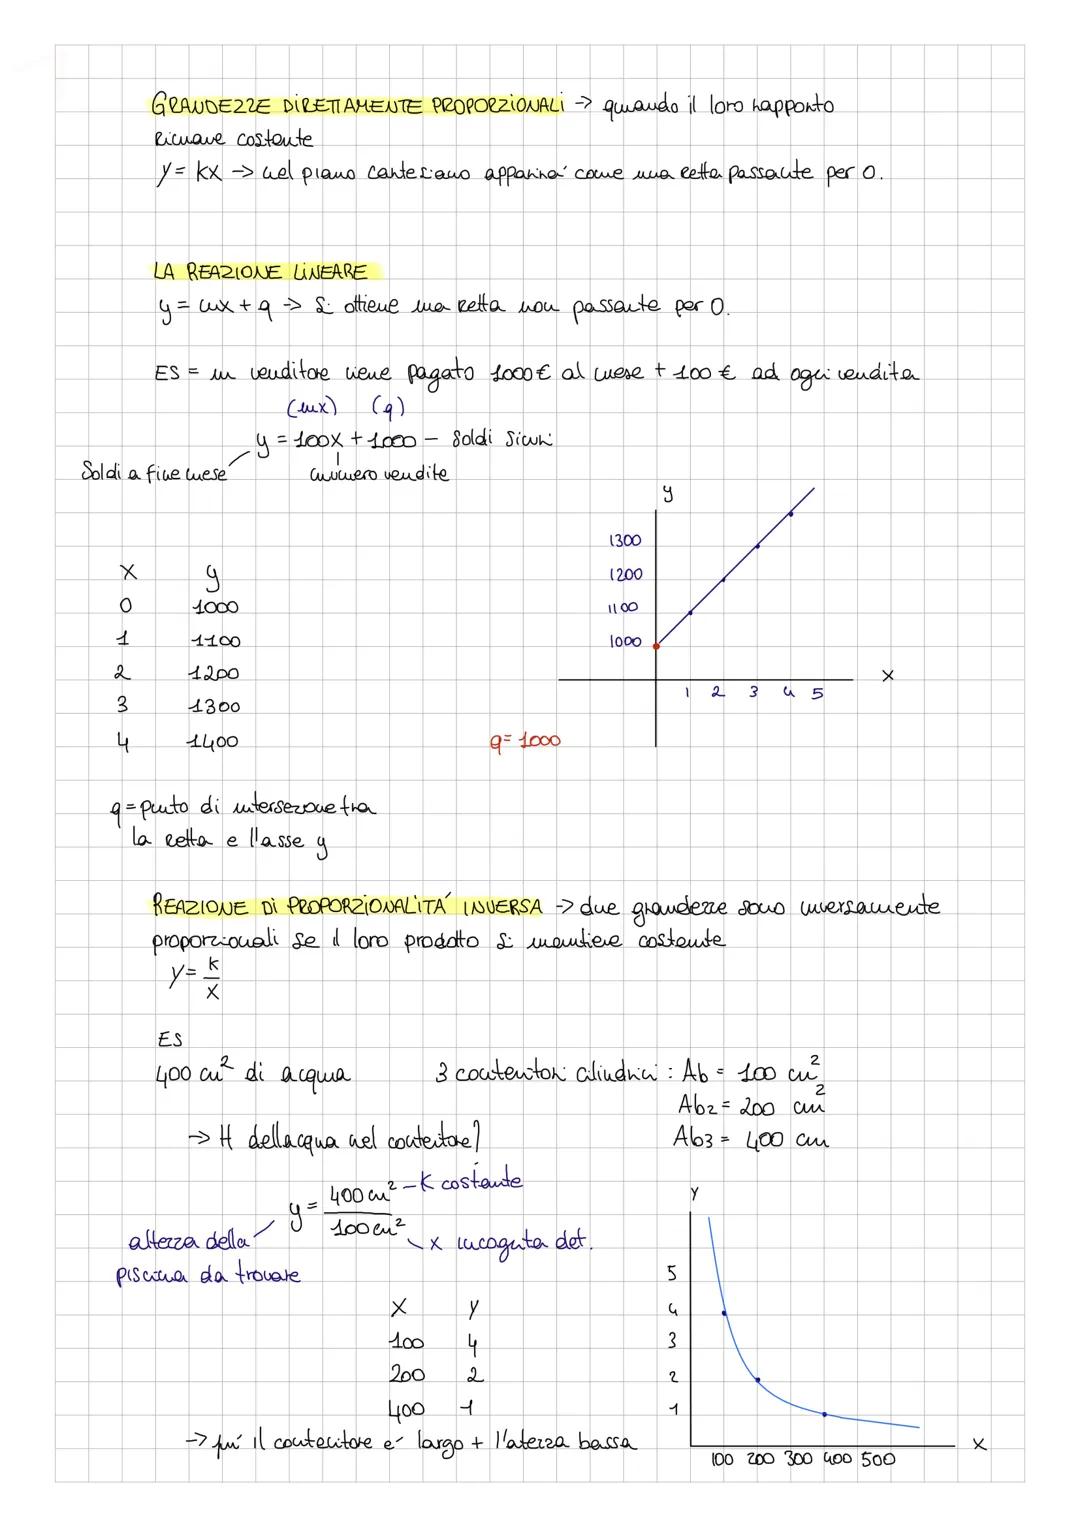 GRANDEZZE DIRETTAMENTE PROPORZIONALI -> quando il loro rapporto
Rimane costante
y = kx -> nel piano cartesiano apparirá come una retta passante per 0.
LA REAZIONE LINEARE
y = mx + q -> si ottiene una retta non passante per 0.
ES = un venditore viene pagato 1000 € al mese + 100 € ad ogni vendita
(mx) (q)
y = 100x + 1000 - Soldi sicuri
Soldi a fine mese numero vendite
y
1300
1200
1100
1000
x
1 2 3 4 5
x y
0 1000
1 1100
2 1200
3 1300
4 1400
q = 1000
q = punto di intersezione tra
la retta e l'asse y
REAZIONE DI PROPORZIONALITÁ INVERSA -> due grandezze sono inversamente
proporzionali se il loro prodotto si mantiene costante
y = k/x
ES
400 cm² di acqua 3 contenitori cilindrici : Ab = 100 cm²
Ab2 = 200 cm²
-> H dell'acqua nel contenitore? Ab3 = 400 cm
y = 400 cm²/100 cm² - K costante
altezza della x incognita det.
piscina da trovare
X Y
100 4
200 2
400 1
-> piú il contenitore é largo + l'atezza bassa
Y
5
4
3
2
1
X
100 200 300 400 500